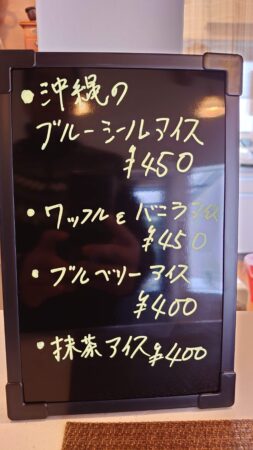 •沖縄の
ブルーシールアイス
¥450
•ワッフルとバニラアイス
¥450
•ブルベリーアイス
¥400
•抹茶アイス ¥400